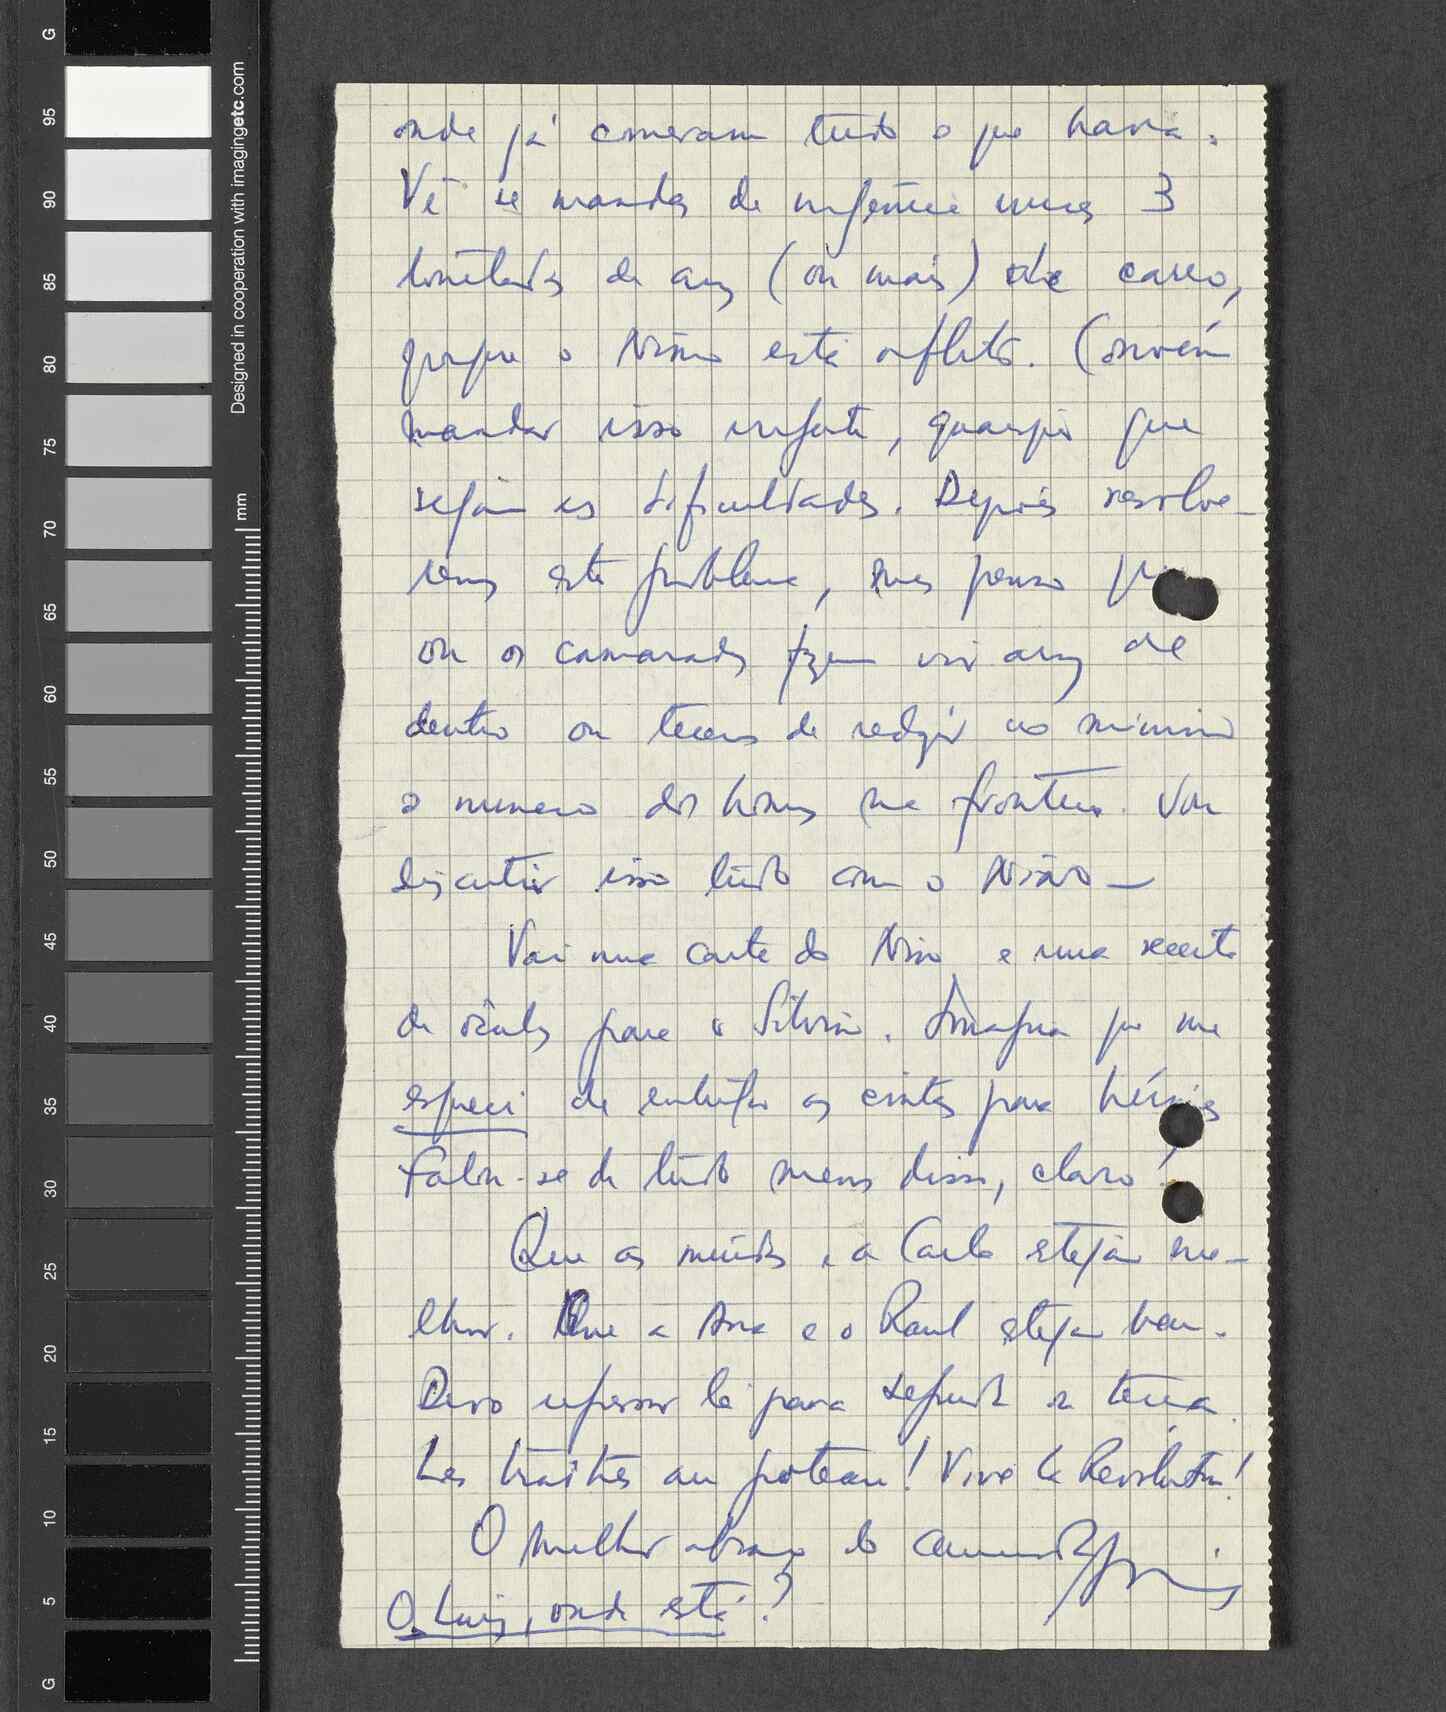 onde já comeram tudo o que havia.
Vê se mandas de urgência umas 3
toneladas de arroz (ou mais) de carro,
porque o Nino está aflito. Convém
mandar isso urgente, quaisquer que
sejam as dificuldades. Depois resolve-
remos este problema, mas penso que
ou os camaradas fazem vir arroz de
dentro ou temos de reduzir ao mínimo
o numero dos homens na fronteira. Vou
discutir isso tudo com o Nino —
Vai uma carta do Nino e uma receita
de óculos para o Silvino. Imagina que me
esqueci de entregar as cintas para hérnias
Falou-se de tudo menos disso, claro!
Que os miúdos e a Carlo estejam me-
lhor. Que a Ana e o Raul estejam bem.
Devo regressar lá para segunda ou terça.
Les traîtres au poteau! Vive la Révolution!
O melhor abraço do camarada
O Luiz, onde está?
G
95
90
85
80
75
70
65
60
55
50
45
40
35
30
25
20
15
10
5
G
mm
Designed in cooperation with imagingetc.com